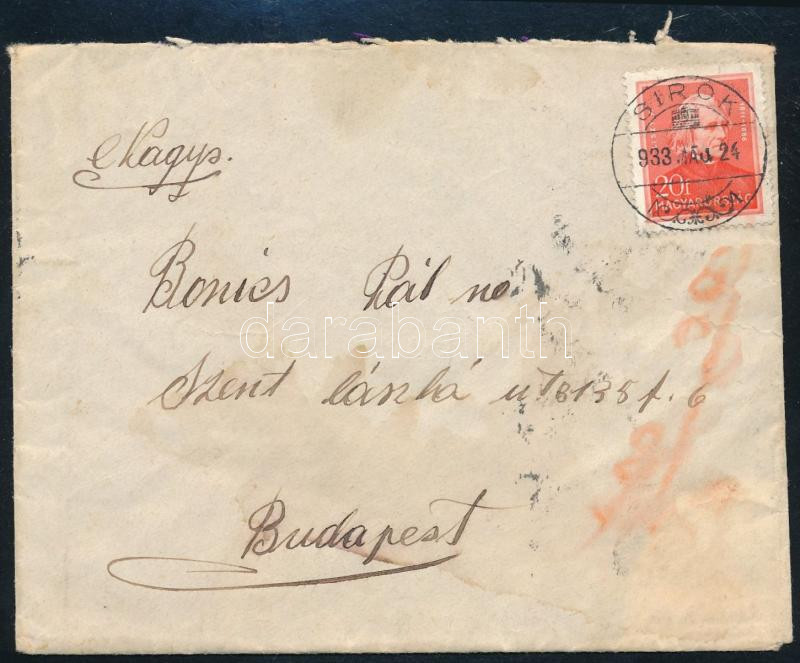 SIROK
933 MÁJ 24
20f
MAGYARORSZÁG
Nagys.
Bonics Pál né
darabanth
Szent László út
Budapest